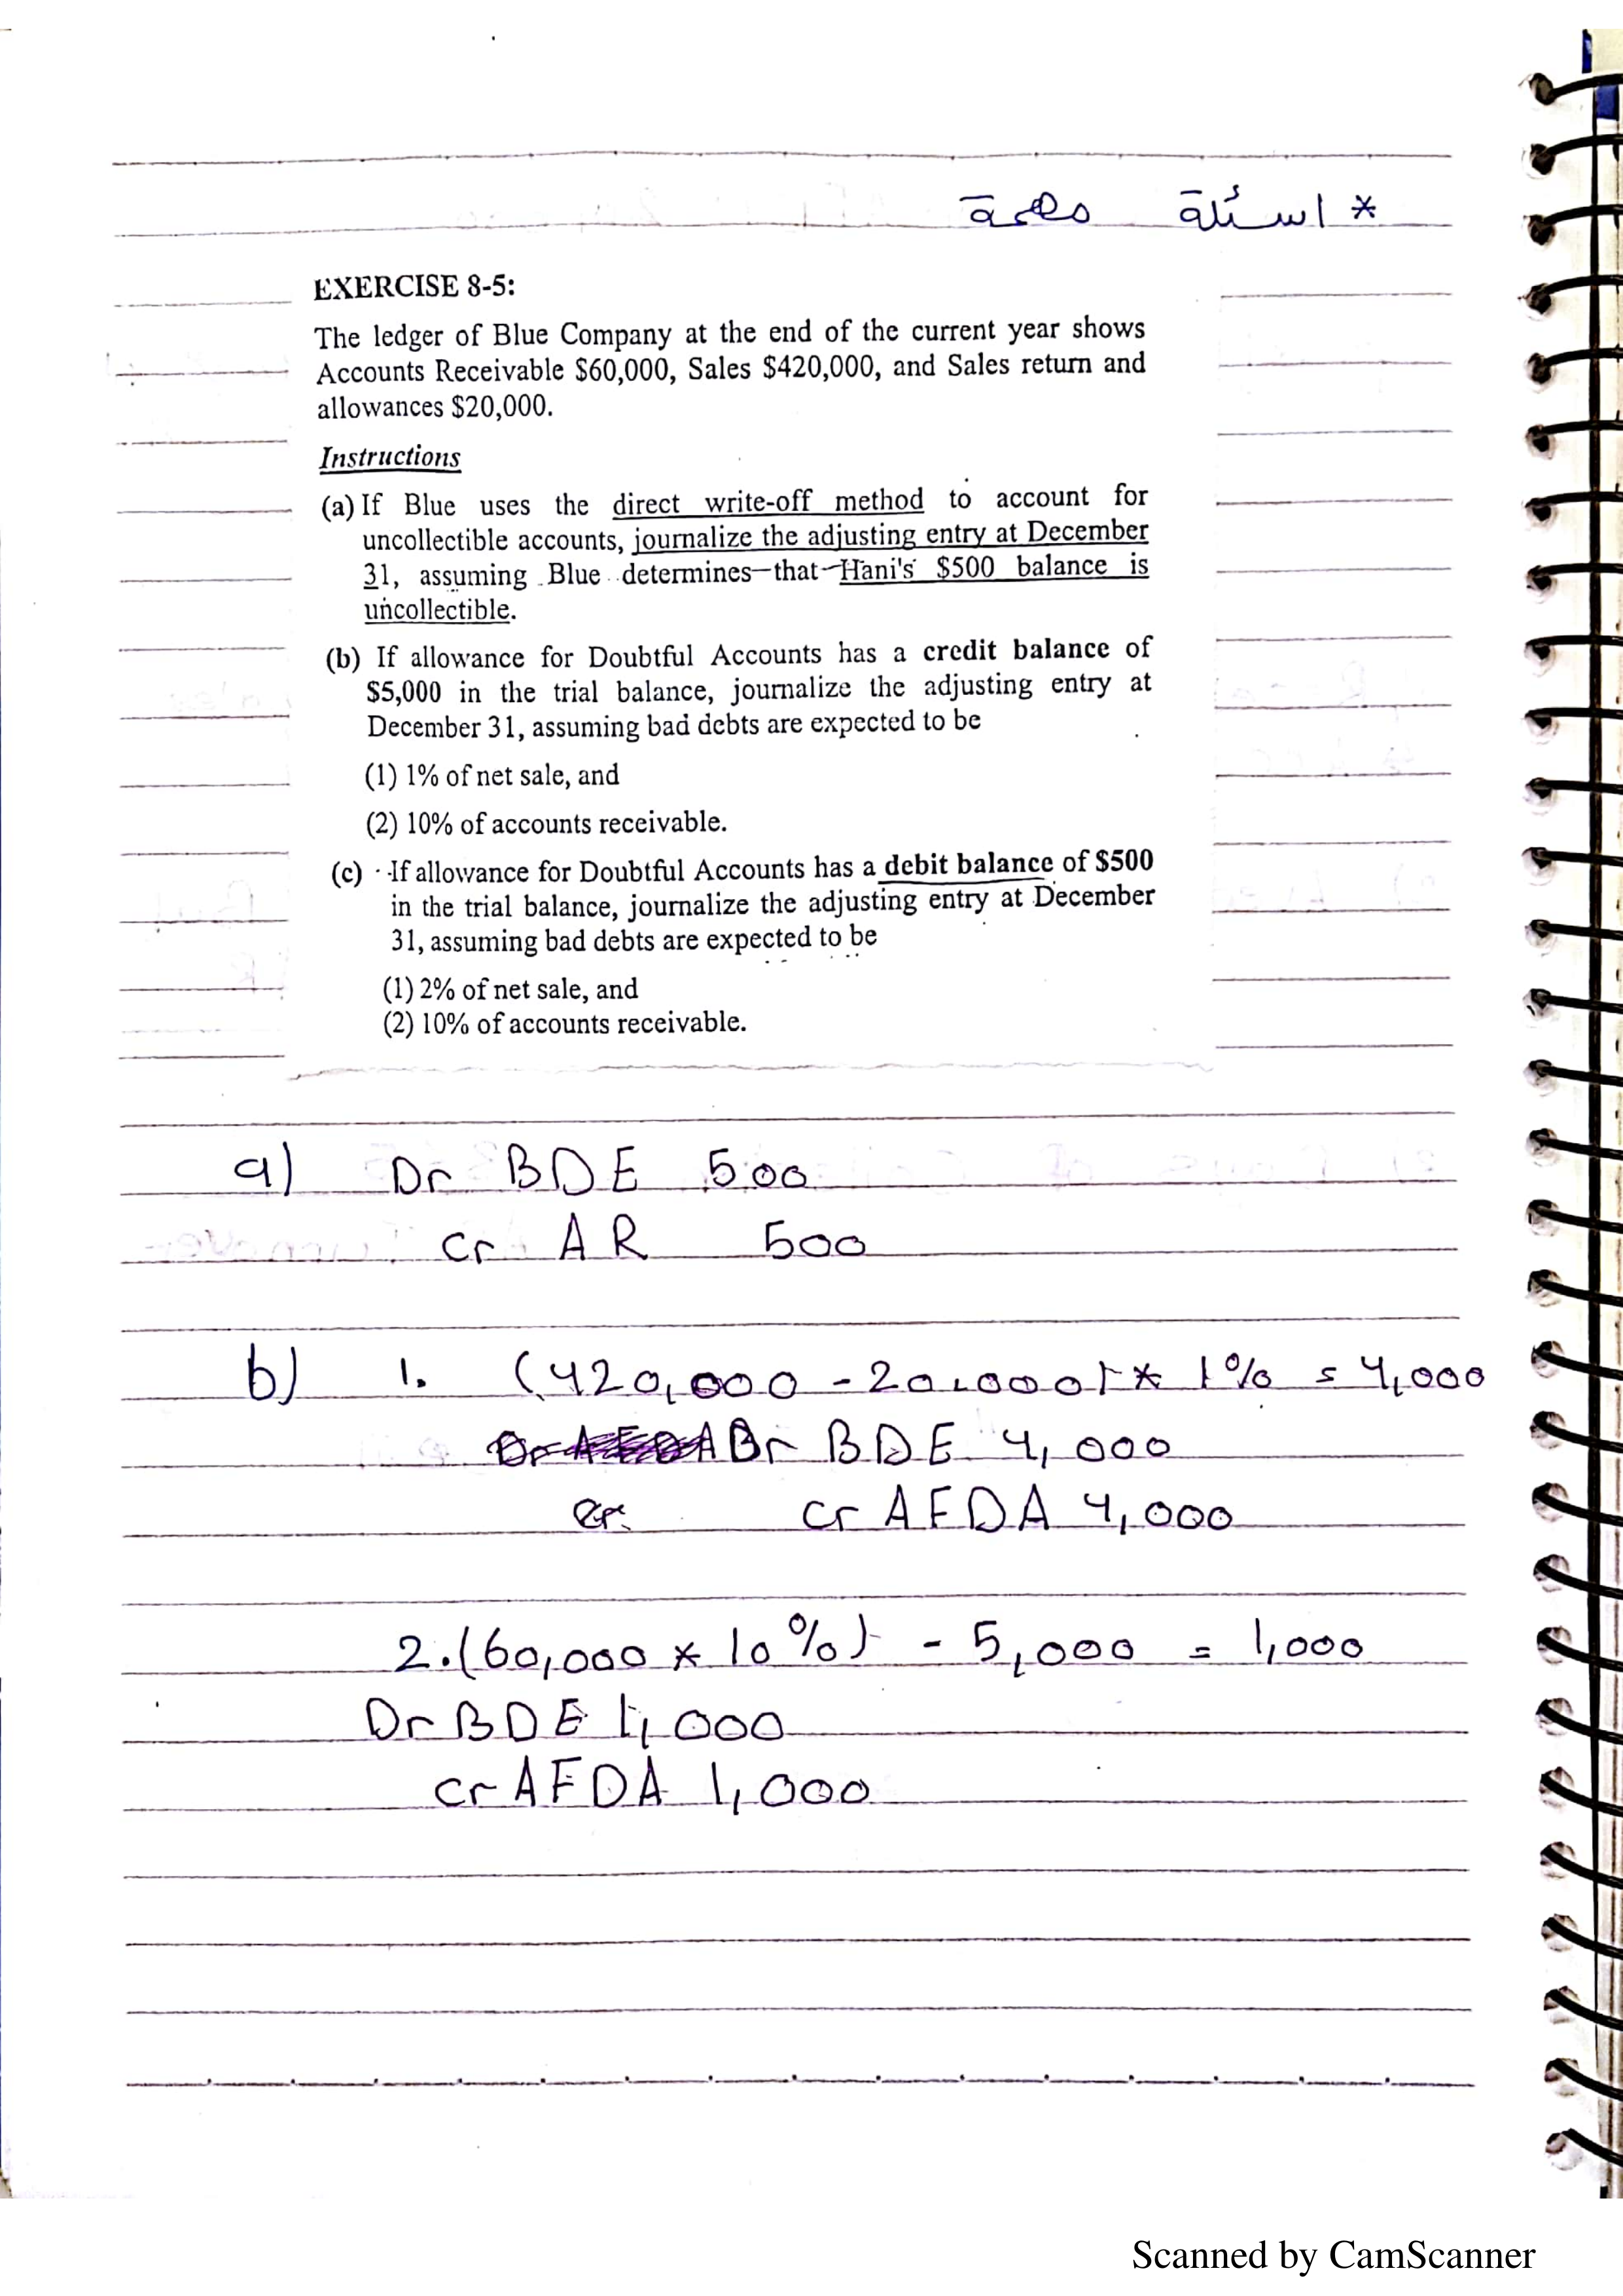 * اسئلة مهمة
EXERCISE 8-5:
The ledger of Blue Company at the end of the current year shows
Accounts Receivable $60,000, Sales $420,000, and Sales return and
allowances $20,000.
Instructions
(a) If Blue uses the direct write-off method to account for
uncollectible accounts, journalize the adjusting entry at December
31, assuming Blue determines that Hani's $500 balance is
uncollectible.
(b) If allowance for Doubtful Accounts has a credit balance of
$5,000 in the trial balance, journalize the adjusting entry at
December 31, assuming bad debts are expected to be
(1) 1% of net sale, and
(2) 10% of accounts receivable.
(c) If allowance for Doubtful Accounts has a debit balance of $500
in the trial balance, journalize the adjusting entry at December
31, assuming bad debts are expected to be
(1) 2% of net sale, and
(2) 10% of accounts receivable.
a) Dr BDE 500
cr AR 500
b) 1. (420,000 - 20,000) * 1% = 4,000
Dr BDE 4,000
cr AFDA 4,000
2. (60,000 * 10%) - 5,000 = 1,000
Dr BDE 1,000
cr AFDA 1,000
Scanned by CamScanner